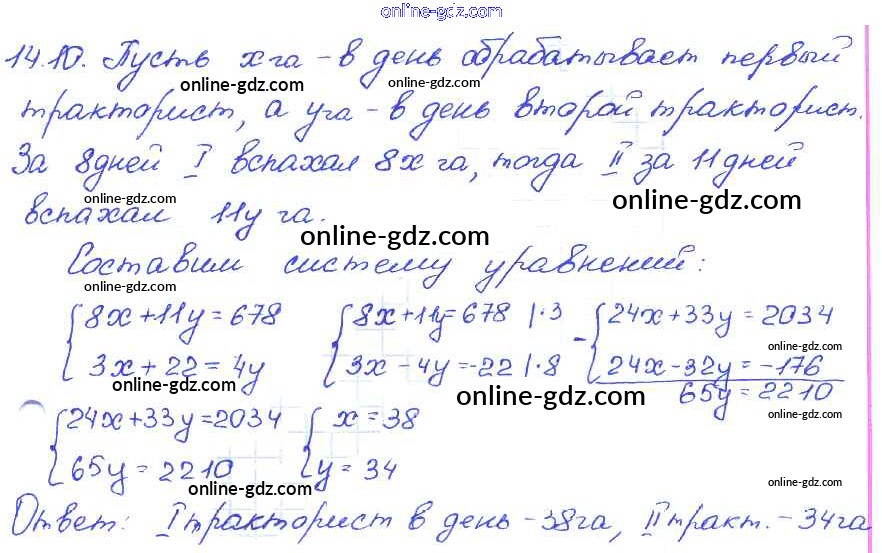 online-gdz.com
14.10. Пусть x га - в день обрабатывает первый
online-gdz.com online-gdz.com
тракторист, а y га - в день второй тракторист.
online-gdz.com
За 8 дней I вспахал 8x га, тогда II за 11 дней
online-gdz.com online-gdz.com
вспахал 11y га.
online-gdz.com
Составим систему уравнений:
online-gdz.com online-gdz.com
8x + 11y = 678 8x + 11y = 678 | · 3 - 24x + 33y = 2034
online-gdz.com
3x + 22 = 4y 3x - 4y = -22 | · 8 24x - 32y = -176
online-gdz.com online-gdz.com
65y = 2210
online-gdz.com online-gdz.com
24x + 33y = 2034 x = 38
online-gdz.com
65y = 2210 y = 34
online-gdz.com online-gdz.com
Ответ: I тракторист в день - 38 га, II тракт. - 34 га
online-gdz.com online-gdz.com